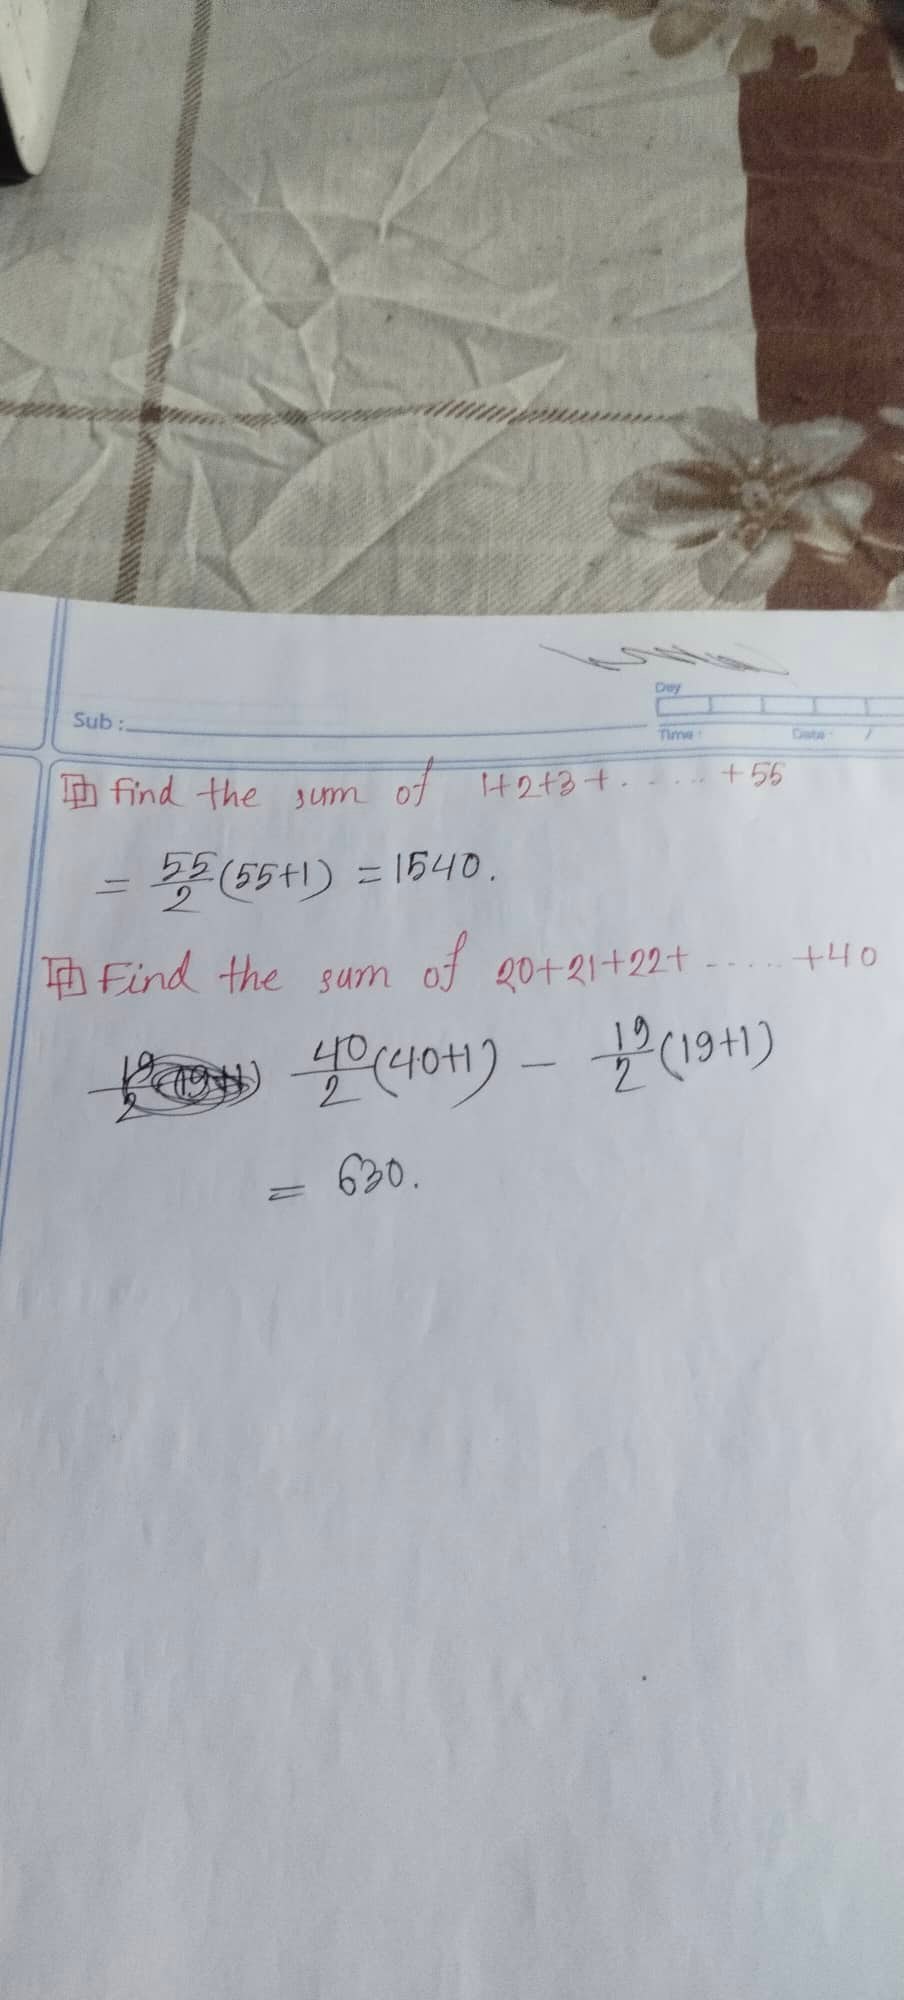 Day
Sub:
Time: Date: /
find the sum of 1+2+3+.....+55
= 55/2 (55+1) = 1540.
Find the sum of 20+21+22+ ..... +40
40/2 (40+1) – 19/2 (19+1)
= 630.